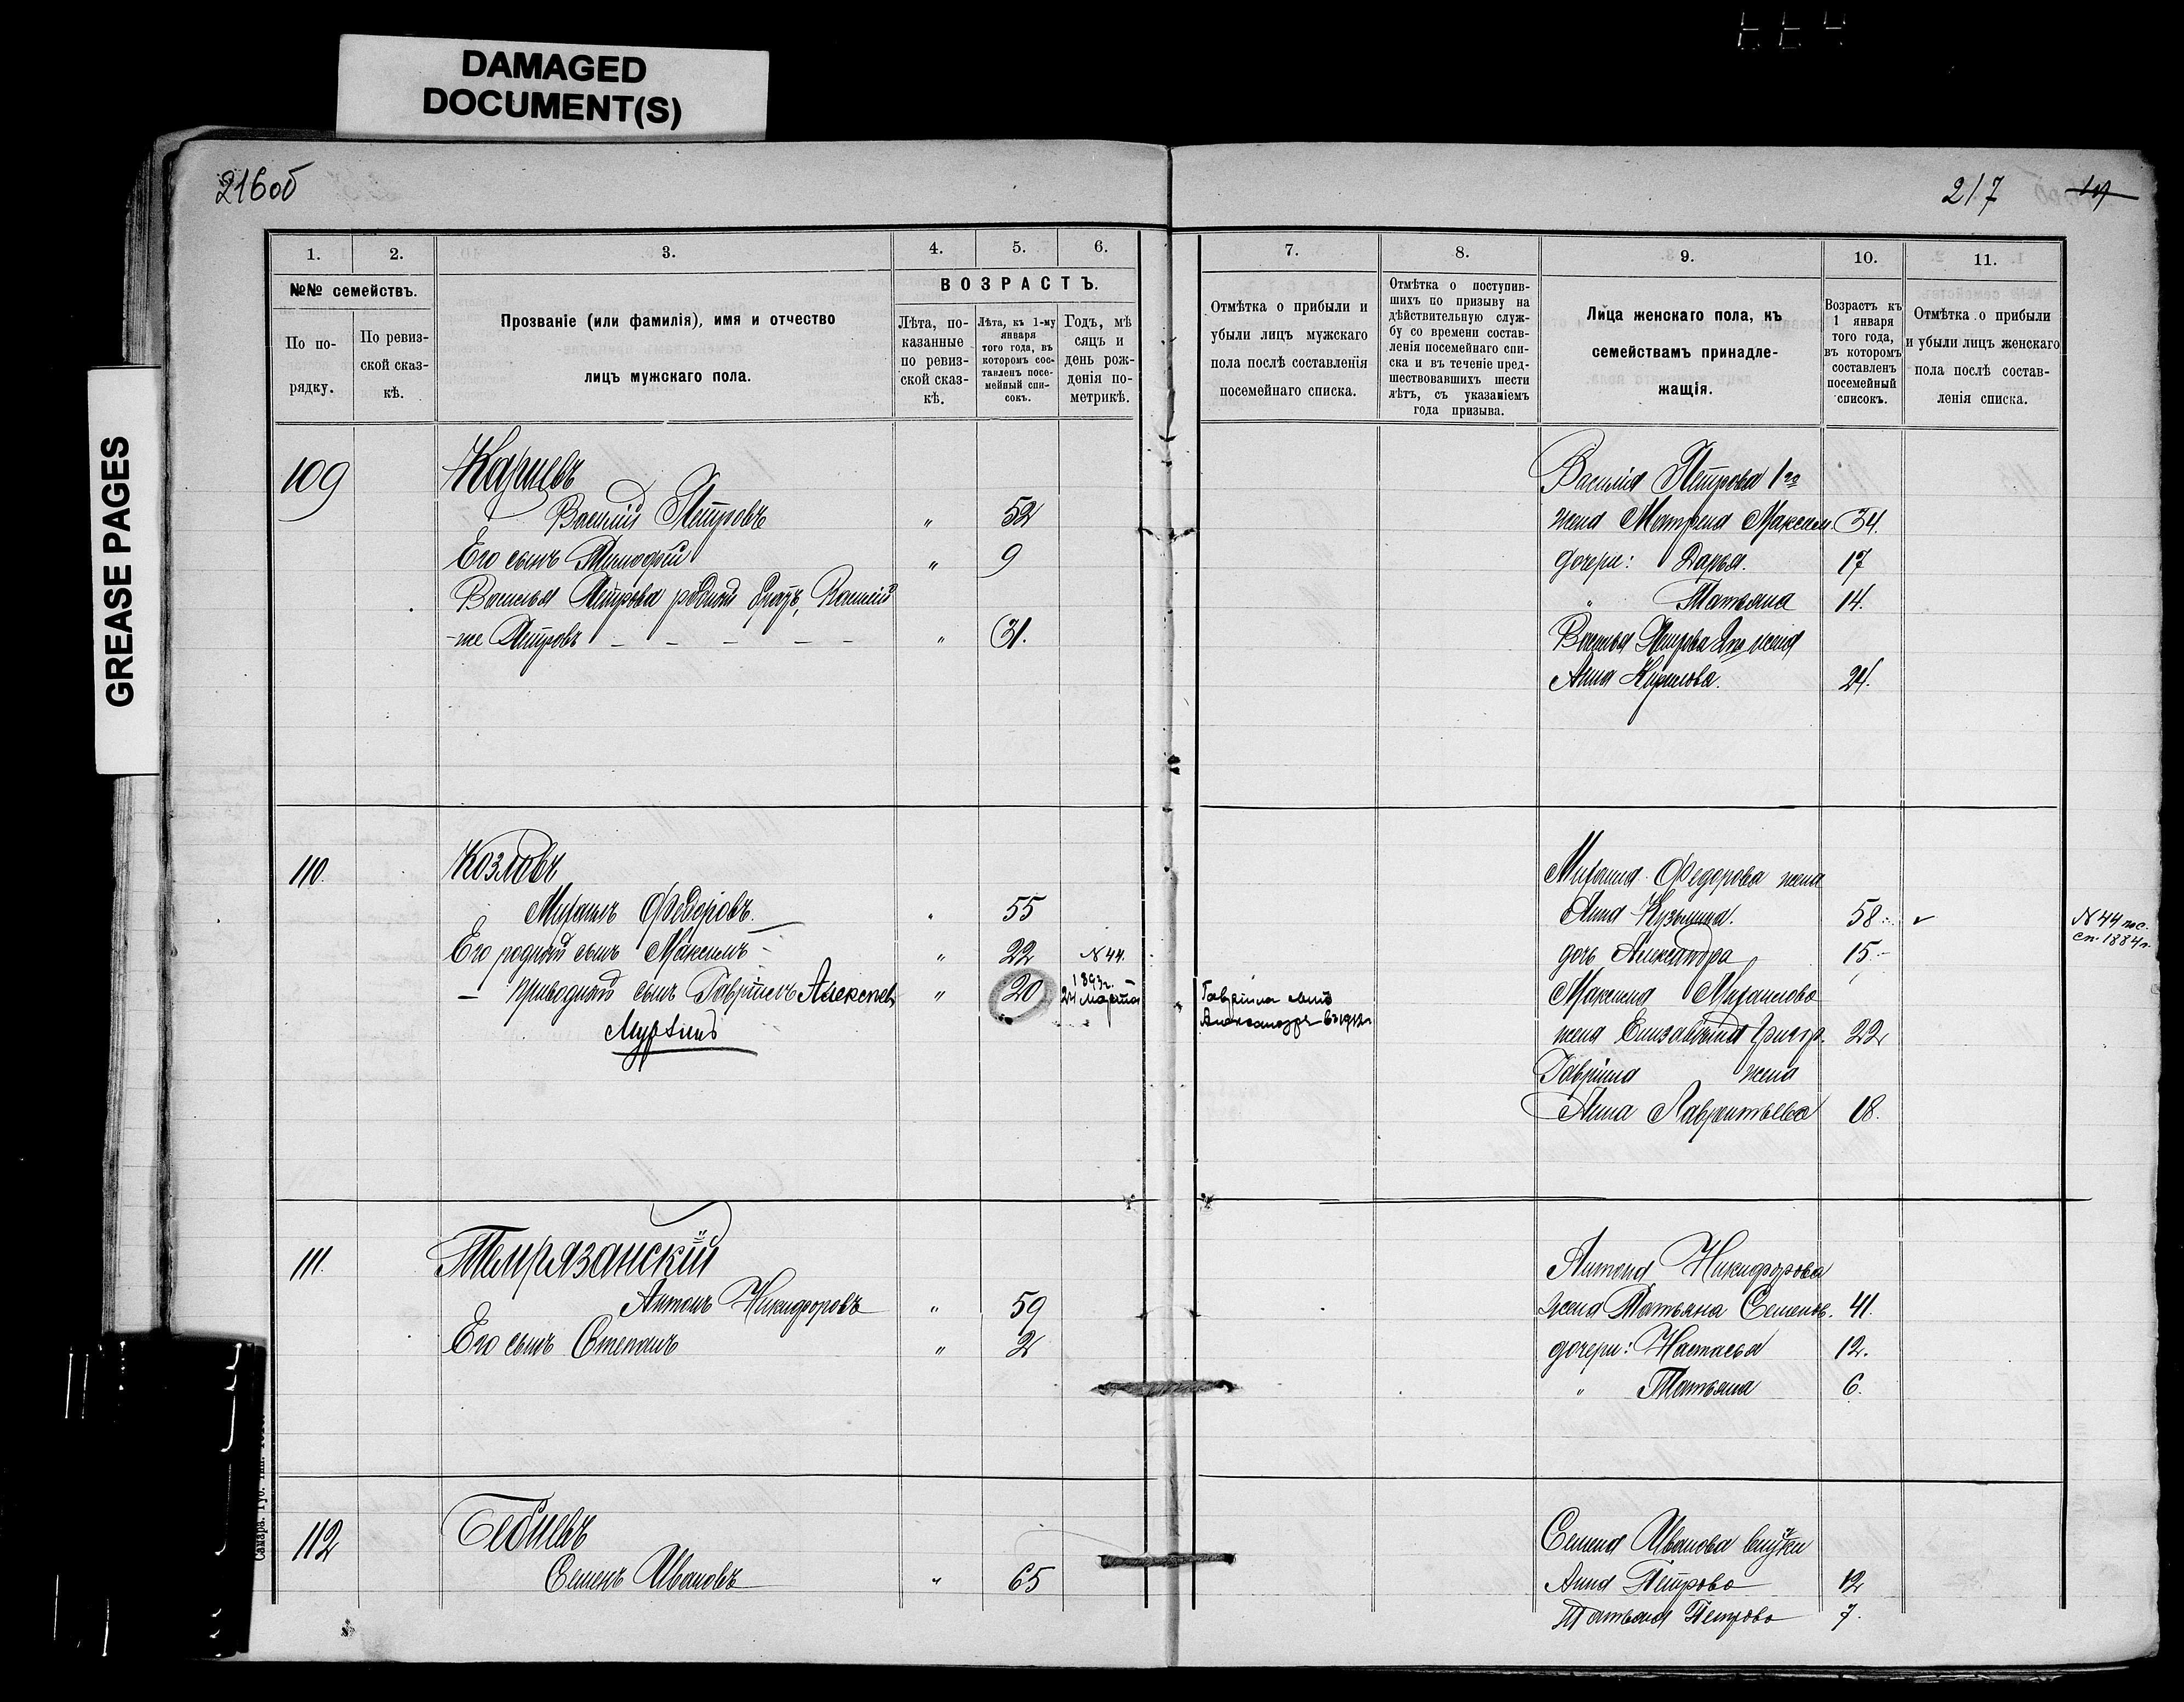 DAMAGED
DOCUMENT(S)
GREASE PAGES
216об
1.
2.
3.
4.
5.
6.
№№ семействъ.
По по-
рядку.
По ревиз-
ской сказ-
кѣ.
Прозваніе (или фамилія), имя и отчество
лицъ мужскаго пола.
ВОЗРАСТЪ.
Лѣта, по-
казанные
по ревиз-
ской сказ-
кѣ.
Лѣта, къ 1-му
января
того года, въ
которомъ сос-
тавленъ посе-
мейный спи-
сокъ.
Годъ, мѣ
сяцъ и
день рож-
денія по-
метрикѣ.
109
Василій Петровъ " 52
Его сынъ Тимофей " 9
Василья Петрова родной братъ, Василій
-же Петровъ - - - - - " 31.
110.
Козловъ
Михаилъ Федоровъ. " 55
Его родной сынъ Максимъ - " 22 N 44.
- приводной сынъ Гавріилъ Алексѣевъ " 20 1893г. 24 марта
111.
Темрязанскій
Антонъ Никифоровъ " 59
Его сынъ Степанъ " 2
112
Семенъ Ивановъ " 65
Самара. Губ. тип.
217
7.
8.
9.
10.
11.
Отмѣтка о прибыли и
убыли лицъ мужскаго
пола послѣ составленія
посемейнаго списка.
Отмѣтка о поступив-
шихъ по призыву на
дѣйствительную служ-
бу со времени состав-
ленія посемейнаго спи-
ска и въ теченіе пред-
шествовавшихъ шести
лѣтъ, съ указаніемъ
года призыва.
Лица женскаго пола, къ
семействамъ принадле-
жащія.
Возрастъ къ
1 января
того года,
въ которомъ
составленъ
посемейный
списокъ.
Отмѣтка о прибыли
и убыли лицъ женскаго
пола послѣ состав-
ленія списка.
Василія Петрова 1го
жена Матрена Максим 34.
дочери: Дарья. 17
" Татьяна 14.
Василья Петрова 2го жена
Анна Кирилова. 24.
Михаила Федорова жена
Анна Кузьмина. 58
N 44 пос.
сп. 1884 г.
дочь Александра 15.
Максима Михаилова
жена Елизавета Григор. 22
Гавріила сынъ
Александръ въ 1912г.
Гавріила жена
Анна Лаврентьева 18.
Антона Никифорова
жена Татьяна Семенов. 41.
дочери: Настасья 12.
" Татьяна 6.
Семена Иванова внучки
Анна Петрова 12
Татьяна Петрова 7.